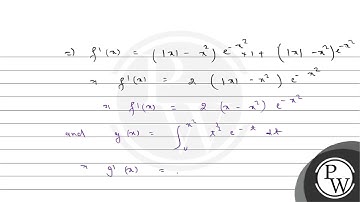 =) f'(x) = (|x| - x²) e^{-x²} + 1 + (|x| - x²) e^{-x²}
» f'(x) = 2 (|x| - x²) e^{-x²}
» f'(x) = 2 (x - x²) e^{-x²}
and y(x) = ∫₀^{x²} t^{½} e^{-t} dt
» g'(x) = .
PW